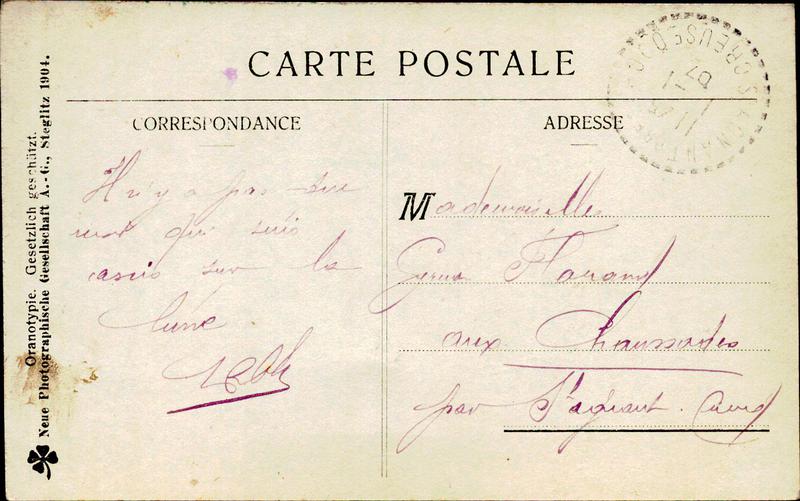 CARTE POSTALE
CORRESPONDANCE
Il n'y a pas que
moi qui suis
assis sur la
lune
ADRESSE
Mademoiselle
aux Chaussades
par St agnant. Creuse
CREUSE
07
Oranotypie. Gesetzlich geschützt.
Neue Photographische Gesellschaft A.-G., Steglitz 1904.